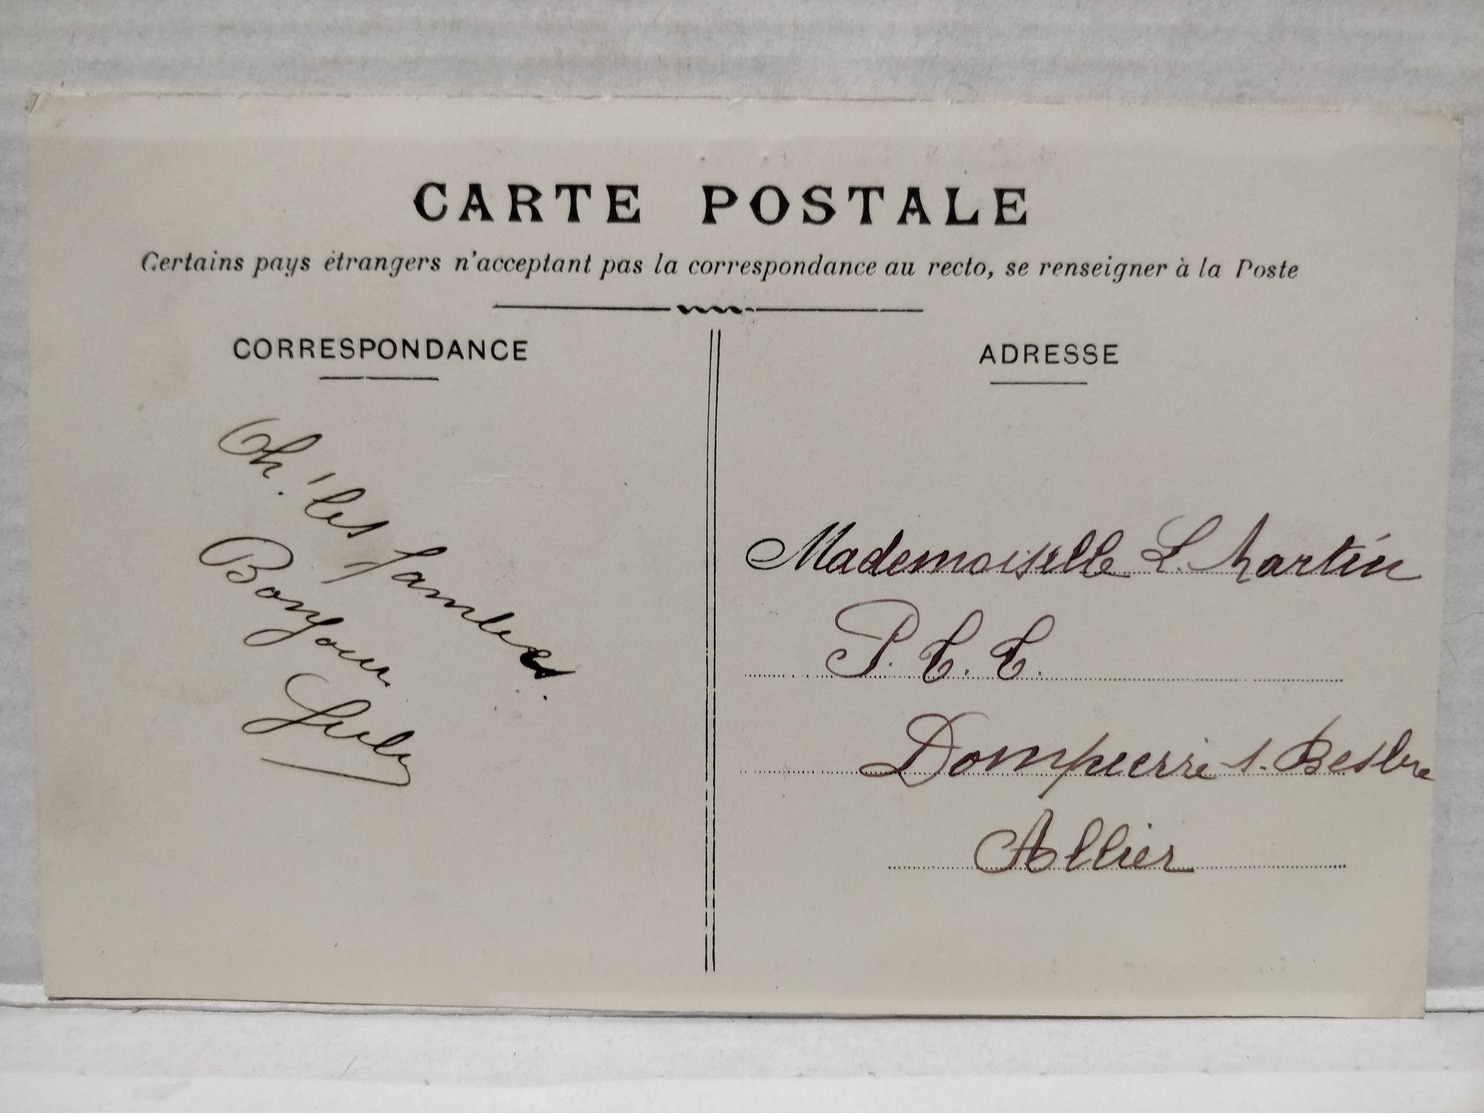 CARTE POSTALE
Certains pays étrangers n'acceptant pas la correspondance au recto, se renseigner à la Poste
CORRESPONDANCE
Oh! les Jambes.
Bonjour
ADRESSE
Mademoiselle L. Martin
P. T. T.
Dompierre s. Besbre
Allier